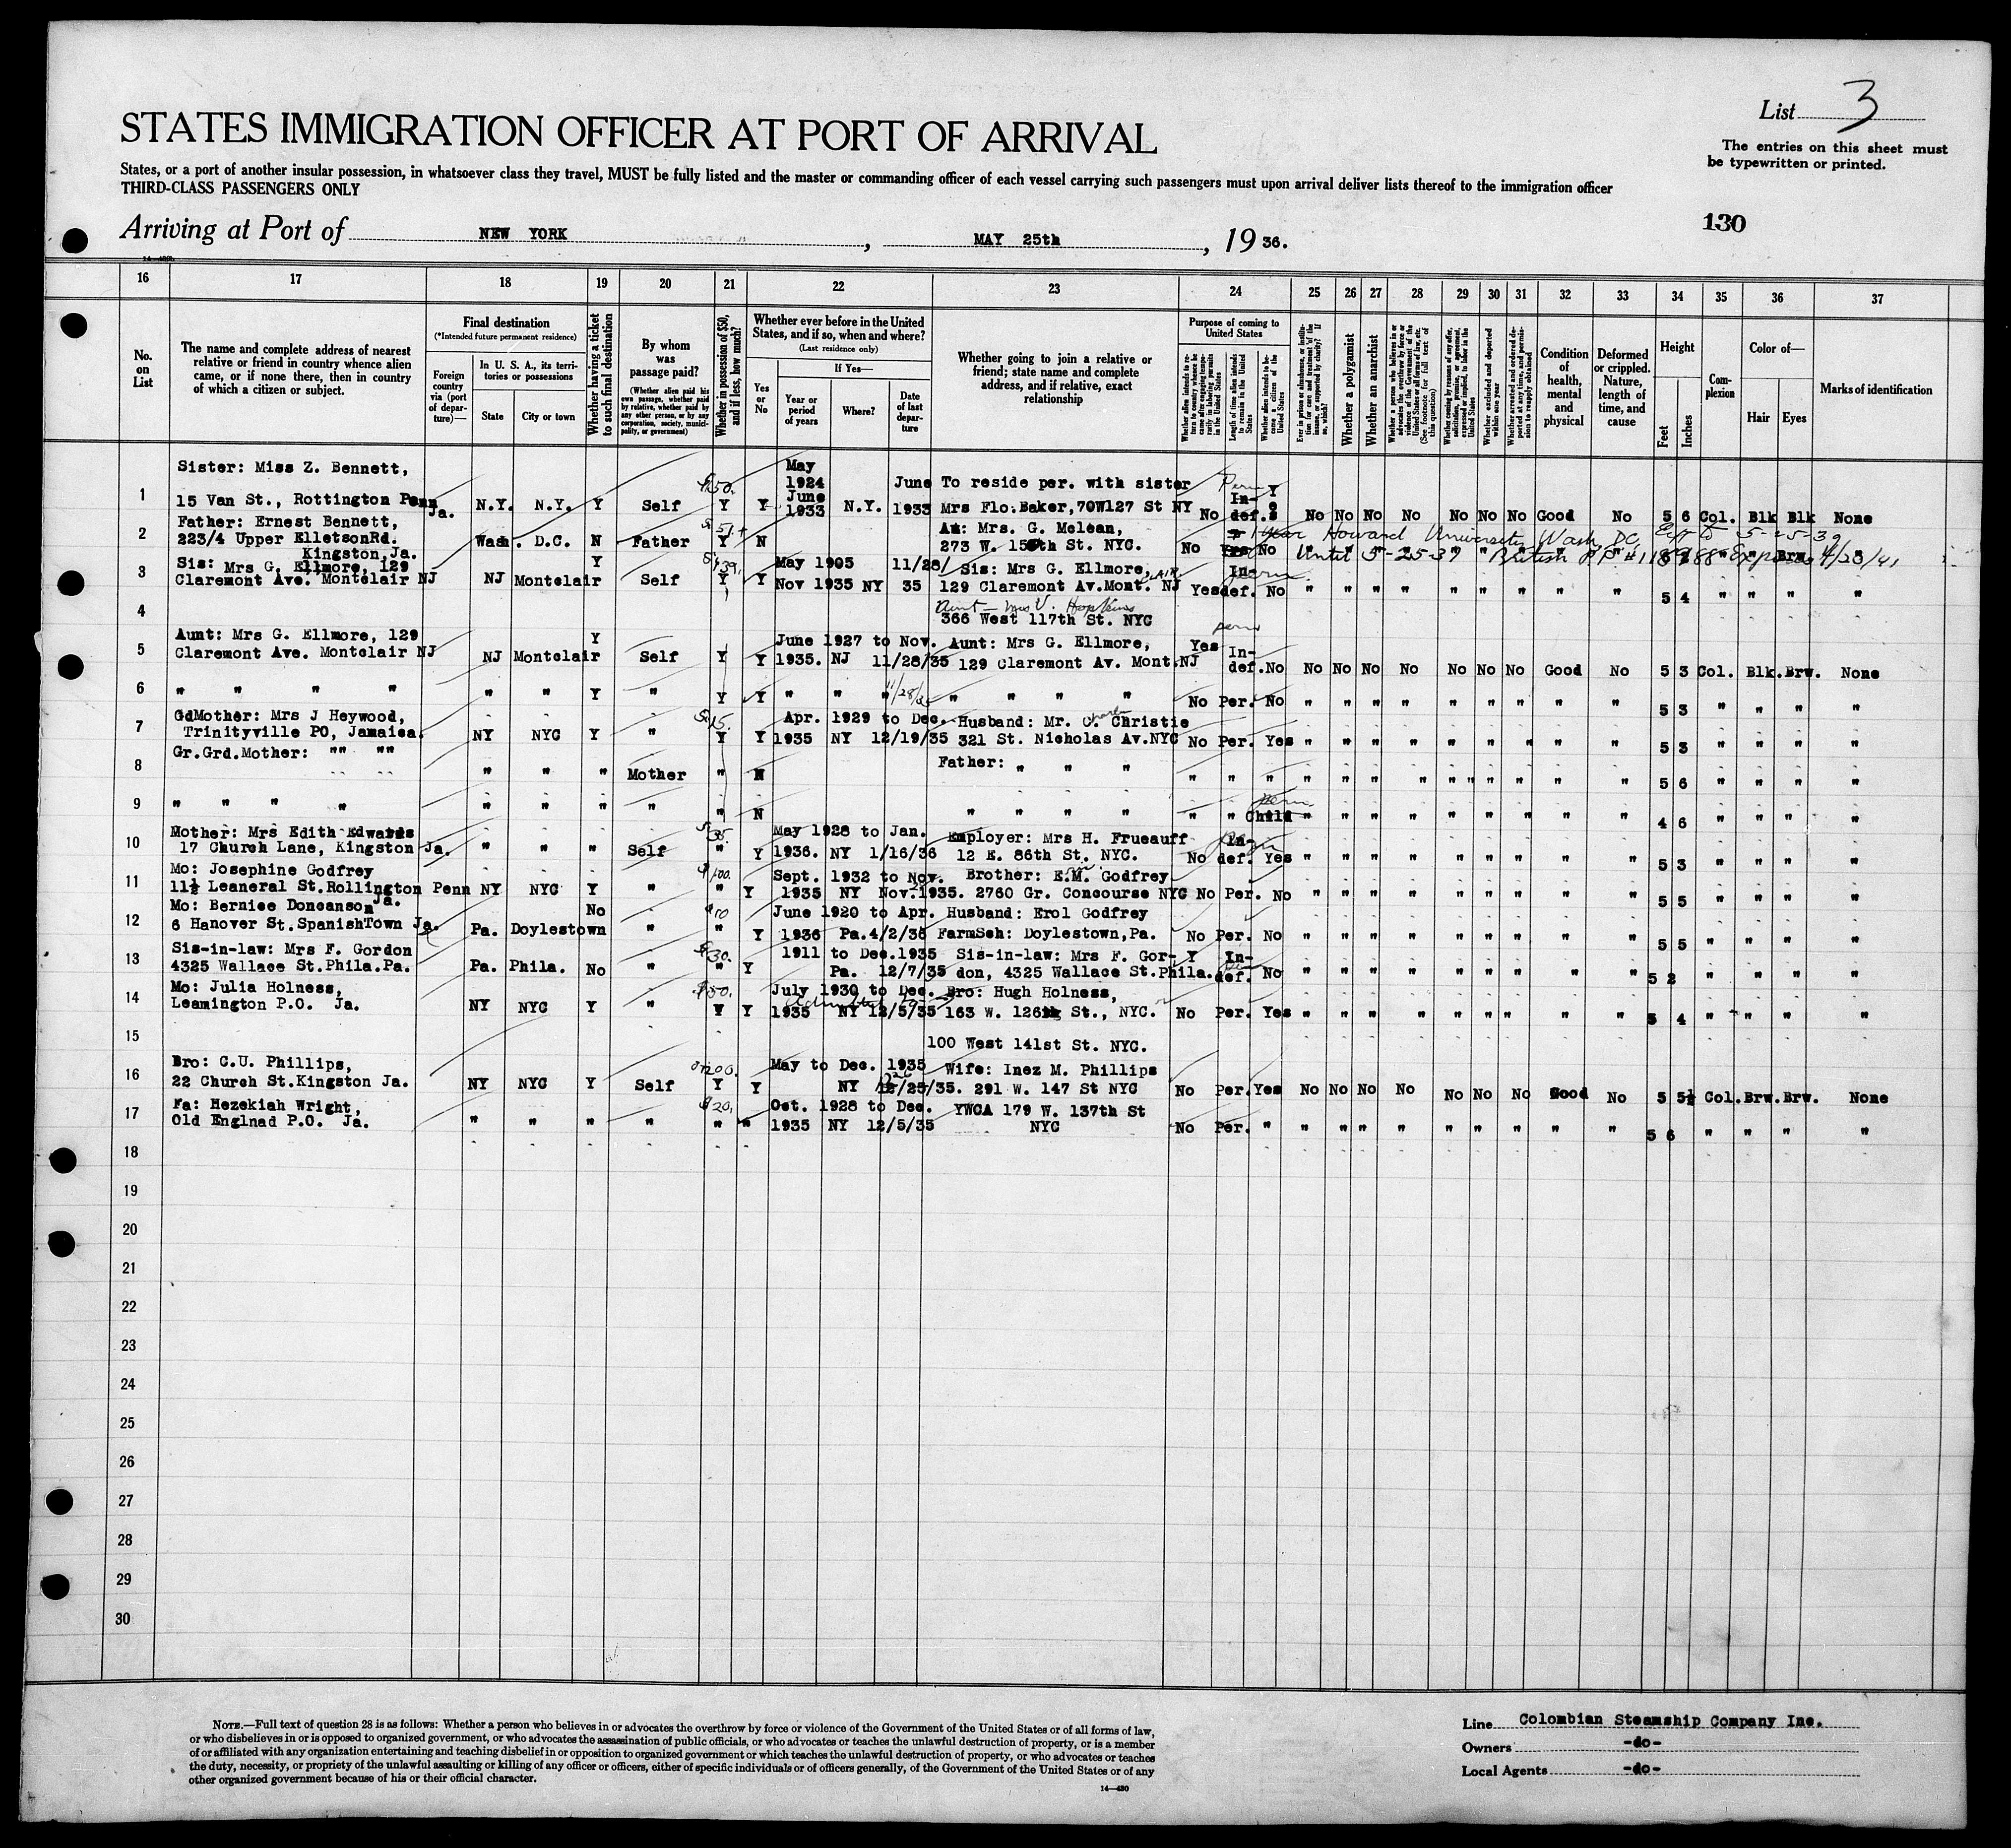 List 3
The entries on this sheet must
be typewritten or printed.
STATES IMMIGRATION OFFICER AT PORT OF ARRIVAL
States, or a port of another insular possession, in whatsoever class they travel, MUST be fully listed and the master or commanding officer of each vessel carrying such passengers must upon arrival deliver lists thereof to the immigration officer
THIRD-CLASS PASSENGERS ONLY
130
Arriving at Port of NEW YORK, MAY 25th, 19 36.
16 17 18 19 20 21 22 23 24 25 26 27 28 29 30 31 32 33 34 35 36 37
No. on List
The name and complete address of nearest relative or friend in country whence alien came, or if none there, then in country of which a citizen or subject.
Final destination
(*Intended future permanent residence)
Foreign country via (port of departure)—
In U. S. A., its territories or possessions
State City or town
Whether having a ticket to such final destination
By whom was passage paid?
(Whether alien paid his own passage, whether paid by relative, whether paid by any other person, or by any corporation, society, municipality, or government)
Whether in possession of $50, and if less, how much?
Whether ever before in the United States, and if so, when and where?
(Last residence only)
Yes or No
If Yes—
Year or period of years
Where?
Date of last departure
Whether going to join a relative or friend; state name and complete address, and if relative, exact relationship
Purpose of coming to United States
Length of time alien intends to remain in the United States
Whether alien intends to become a citizen of the United States
Whether a polygamist
Whether an anarchist
Condition of health, mental and physical
Deformed or crippled. Nature, length of time, and cause
Height
Feet Inches
Complexion
Color of—
Hair Eyes
Marks of identification
1 Sister: Miss Z. Bennett, 15 Van St., Rottington Penn Ja. N.Y. N.Y. Y Self $50. Y Y May 1924 June 1933 N.Y. June 1933 To reside per. with sister Mrs Flo.Baker,70W127 St NY No Indef. Yes No No No No No No No Good No 5 6 Col. Blk Blk None
2 Father: Ernest Bennett, 223/4 Upper ElletsonRd. Kingston,Ja. Wash. D.C. N Father $51+ Y N An: Mrs. G. Mclean, 273 W. 15th St. NYC. No No 1 year Howard University Wash. DC. Until 5-25-37 British P.P. Brw.
3 Sis: Mrs G. Ellmore, 129 Claremont Ave. Montclair NJ NJ Montclair Y Self $139. Y Y May 1905 Nov 1935 NY 11/28/35 Sis: Mrs G. Ellmore, 129 Claremont Av.Mont. NJ Yes Indef. No " " " " " " " " " 5 4 " " " "
4 Aunt - Mrs V. Hopkins 366 West 117th St. NYC
5 Aunt: Mrs G. Ellmore, 129 Claremont Ave. Montclair NJ NJ Montclair Y Self Y Y June 1927 to Nov. 1935. NJ 11/28/35 Aunt: Mrs G. Ellmore, 129 Claremont Av. Mont.NJ Yes perm Indef. No No No No No No No No Good No 5 3 Col. Blk. Brw. None
6 " " " " " " Y " Y Y " " " 11/28/35 " " " " No Per. No " " " " " " " " " 5 3 " " " "
7 GdMother: Mrs J Heywood, Trinityville PO, Jamaica. NY NYC Y " $15. Y Y Apr. 1929 to Dec. 1935 NY 12/19/35 Husband: Mr. C. Charles Christie 321 St. Nicholas Av.NYC No Per. Yes " " " " " " " " " 5 3 " " " "
8 Gr.Grd.Mother: "" "" " " " Mother " N Father: " " " " " " " " " " " " " " " " 5 6 " " " "
9 " " " " " " " " " N " " " " " " Child " " " " " " " " " 4 6 " " " "
10 Mother: Mrs Edith Edwards 17 Church Lane, Kingston Ja. " " " Self $35. " Y May 1928 to Jan. 1936. NY 1/16/36 Employer: Mrs H. Frueauff 12 E. 86th St. NYC. No Indef. Yes " " " " " " " " " 5 3 " " " "
11 Mo: Josephine Godfrey 11½ Leaneral St.Rollington Penn Ja. NY NYC Y " $100. " Y Sept. 1932 to Nov. 1935 NY Nov.1935. Brother: E.M. Godfrey 2760 Gr. Concourse NYC No Per. No " " " " " " " " " 5 5 " " " "
12 Mo: Berniee Doncanson 6 Hanover St.SpanishTown Ja. Pa. Doylestown No " $10 " Y June 1920 to Apr. 1936 Pa.4/2/36 Husband: Erol Godfrey FarmSch: Doylestown,Pa. No Per. No " " " " " " " " " 5 5 " " " "
13 Sis-in-law: Mrs F. Gordon 4325 Wallace St.Phila.Pa. Pa. Phila. No " $30. " Y 1911 to Dec.1935 Pa. 12/7/35 Sis-in-law: Mrs F. Gordon, 4325 Wallace St.Phila. Y Indef. No " " " " " " " " " 5 2 " " " "
14 Mo: Julia Holness, Leamington P.O. Ja. NY NYC Y " $50. Y Y July 1930 to Dec. 1935 NY 12/5/35 Bro: Hugh Holness, 163 W. 126th St., NYC. No Per. Yes " " " " " " " " " 5 4 " " " "
15 100 West 141st St. NYC.
16 Bro: C.U. Phillips, 22 Church St.Kingston Ja. NY NYC Y Self $200. Y Y May to Dec. 1935 NY 12/25/35. Wife: Inez M. Phillips 291 W. 147 St NYC No Per. Yes No No No No No No No Good No 5 5½ Col. Brw. Brw. None
17 Fa: Hezekiah Wright, Old Englnad P.O. Ja. " " " " $20. " " Oct. 1928 to Dec. 1935 NY 12/5/35 YWCA 179 W. 137th St NYC No Per. " " " " " " " " " " 5 6 " " " "
18
19
20
21
22
23
24
25
26
27
28
29
30
NOTE.—Full text of question 28 is as follows: Whether a person who believes in or advocates the overthrow by force or violence of the Government of the United States or of all forms of law,
or who disbelieves in or is opposed to organized government, or who advocates the assassination of public officials, or who advocates or teaches the unlawful destruction of property, or is a member
of or affiliated with any organization entertaining and teaching disbelief in or opposition to organized government or which teaches the unlawful destruction of property, or who advocates or teaches
the duty, necessity, or propriety of the unlawful assaulting or killing of any officer or officers, either of specific individuals or of officers generally, of the Government of the United States or of any
other organized government because of his or their official character.
14—430
Line Colombian Steamship Company Inc.
Owners -do-
Local Agents -do-